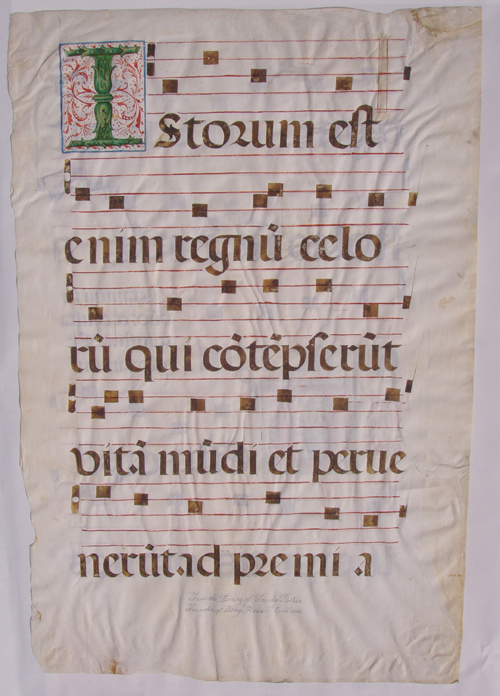 IStorum est
enim regnũ celo
rũ qui cõtẽpserũt
vitã mũdi et perue
nerũt ad premi a